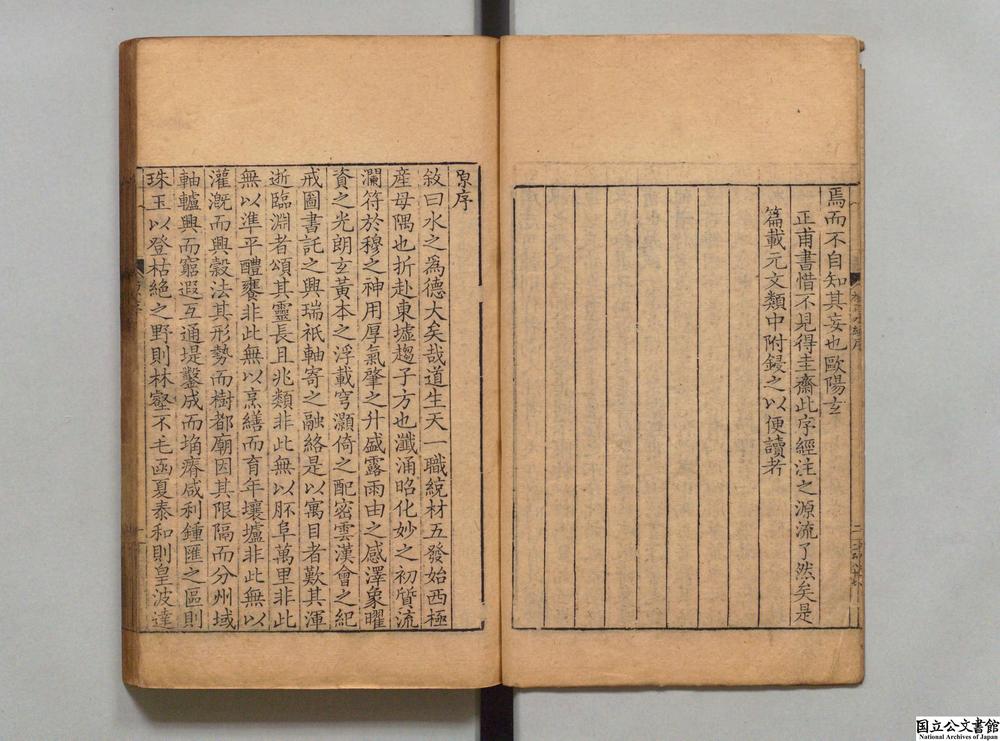 焉而不自知其妄也歐陽玄
正甫書惜不見得圭齋此序經注之源流了然矣是
篇載元文類中附錽之以便讀者
原序
敘曰水之爲德大矣哉道生天一職統材五發始西極
産母隅也折赴東墟趨子方也瀸涌昭化妙之初㫮流
瀾符於穆之神用厚氣肇之升盛露雨由之感澤象曜
資之光朗玄黃本之浮載穹灝倚之配密雲漢會之紀
戒圖書託之興瑞祇軸寄之融絡是以寓目者歎其渾
逝臨淵者頌其靈長且兆類非此無以胚阜萬里非此
無以準平醴饔非此無以烹繕而育年壤壚非此無以
灌漑而興穀法其形勢而樹都廟因其限隔而分州域
軸轤興而窮遐互通堤鑿成而埆瘠咸利鍾匯之區則
珠玉以登枯絶之野則林壑不毛函夏泰和則皇波達
国立公文書館
National Archives of Japan